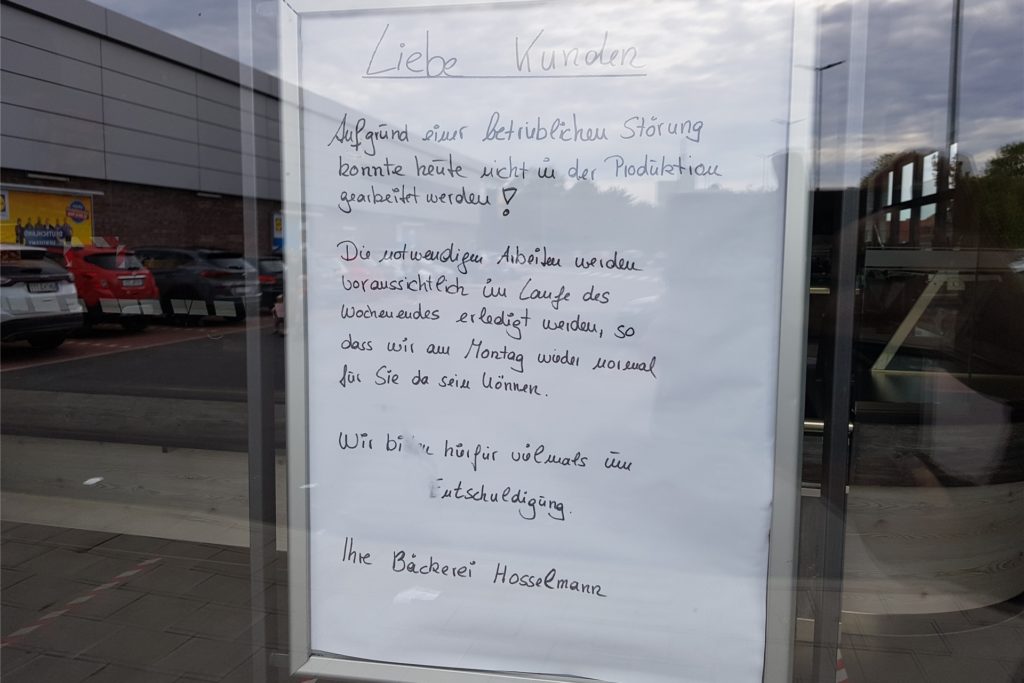 Liebe Kunden
Aufgrund einer betrieblichen Störung
konnte heute nicht in der Produktion
gearbeitet werden!
Die notwendigen Arbeiten werden
voraussichtlich im Laufe des
Wochenendes erledigt werden, so
dass wir am Montag wieder normal
für Sie da sein können.
Wir hierfür vielmals um
Entschuldigung.
Ihre Bäckerei Hosselmann